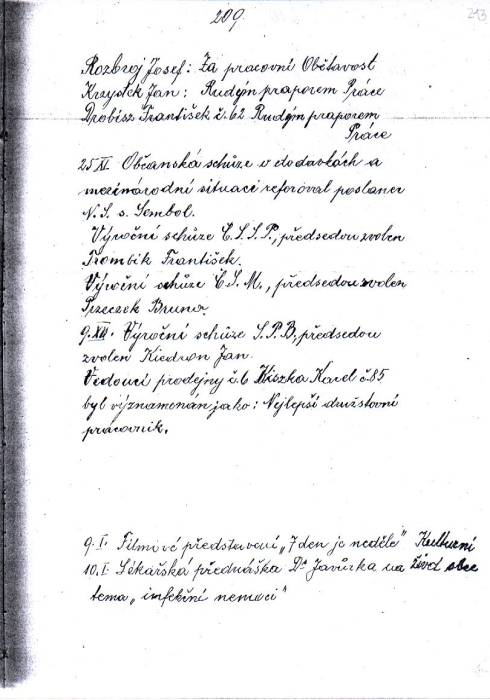 209.
243
Rozbroj Josef: Za pracovní Obětavost
Krzystek Jan: Rudým praporem Práce
Drobisz František č. 62 Rudým praporem
Práce
25 XI. Občanská schůze o dodavkách a
mezinárodní situaci referoval poslanec
N.S. s. Sembol.
Výroční schůze Č.S.S.P., předsedou zvolen
Trombik František.
Výroční schůze Č.S.M., předsedou zvolen
Przeczek Bruno.
9.XII. Výroční schůze S.P.B, předsedou
zvolen Kiedroń Jan.
Vedoucí prodejny č.6 Kiszka Karel č.85,
byl významenán jako: Nejlepší družstovní
pracovnik.
9.I. Filmové představení „7 den je neděle" Kulturní
10.I Lékařská přednáška Dr Javůrka na život obce
tema „infekční nemoci"